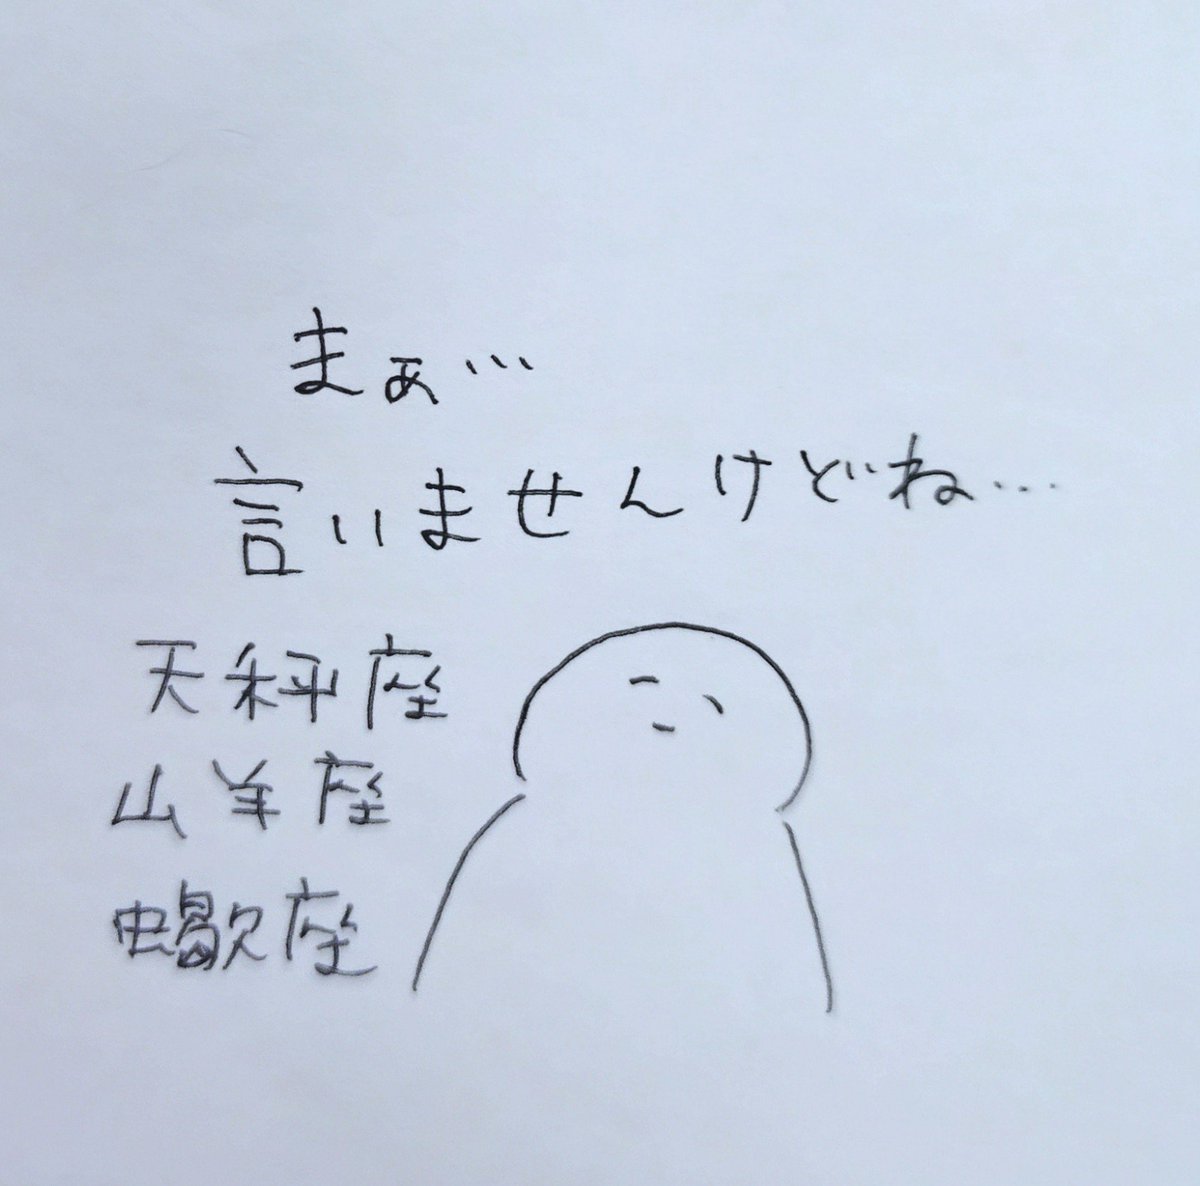 まぁ…
言いませんけどね…
天秤座
山羊座
蠍座